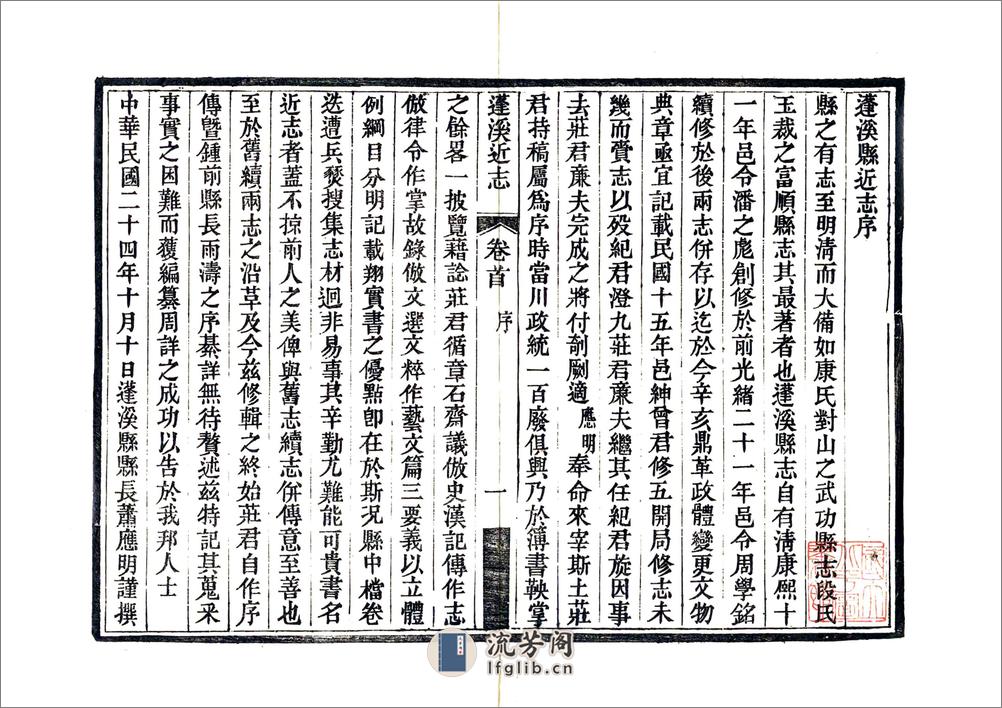 蓬溪縣近志序
縣之有志至明清而大備如康氏對山之武功縣志段氏
玉裁之富順縣志其最著者也蓬溪縣志自有清康熙十
一年邑令潘之彪創修於前光緒二十一年邑令周學銘
續修於後兩志併存以迄於今辛亥鼎革政體變更文物
典章亟宜記載民國十五年邑紳曾君修五開局修志未
幾而賫志以歿紀君澄九莊君亷夫繼其任紀君旋因事
去莊君亷夫完成之將付剞劂適應明奉命來宰斯土莊
君持稿屬爲序時當川政統一百廢俱興乃於簿書鞅掌
蓬溪近志 卷首 序 一
之餘畧一披覽藉諗莊君循章石齋議倣史漢記傳作志
倣律令作掌故錄倣文選文粹作藝文篇三要義以立體
例綱目分明記載翔實書之優點卽在於斯況縣中檔卷
迭遭兵燹搜集志材迥非易事其辛勤尤難能可貴書名
近志者蓋不掠前人之美俾與舊志續志併傳意至善也
至於舊續兩志之沿革及今茲修輯之終始莊君自作序
傳曁鍾前縣長雨濤之序綦詳無待贅述茲特記其蒐采
事實之困難而獲編纂周詳之成功以告於我邦人士
中華民國二十四年十月十日蓬溪縣縣長蕭應明謹撰
流芳阁
lfglib.cn